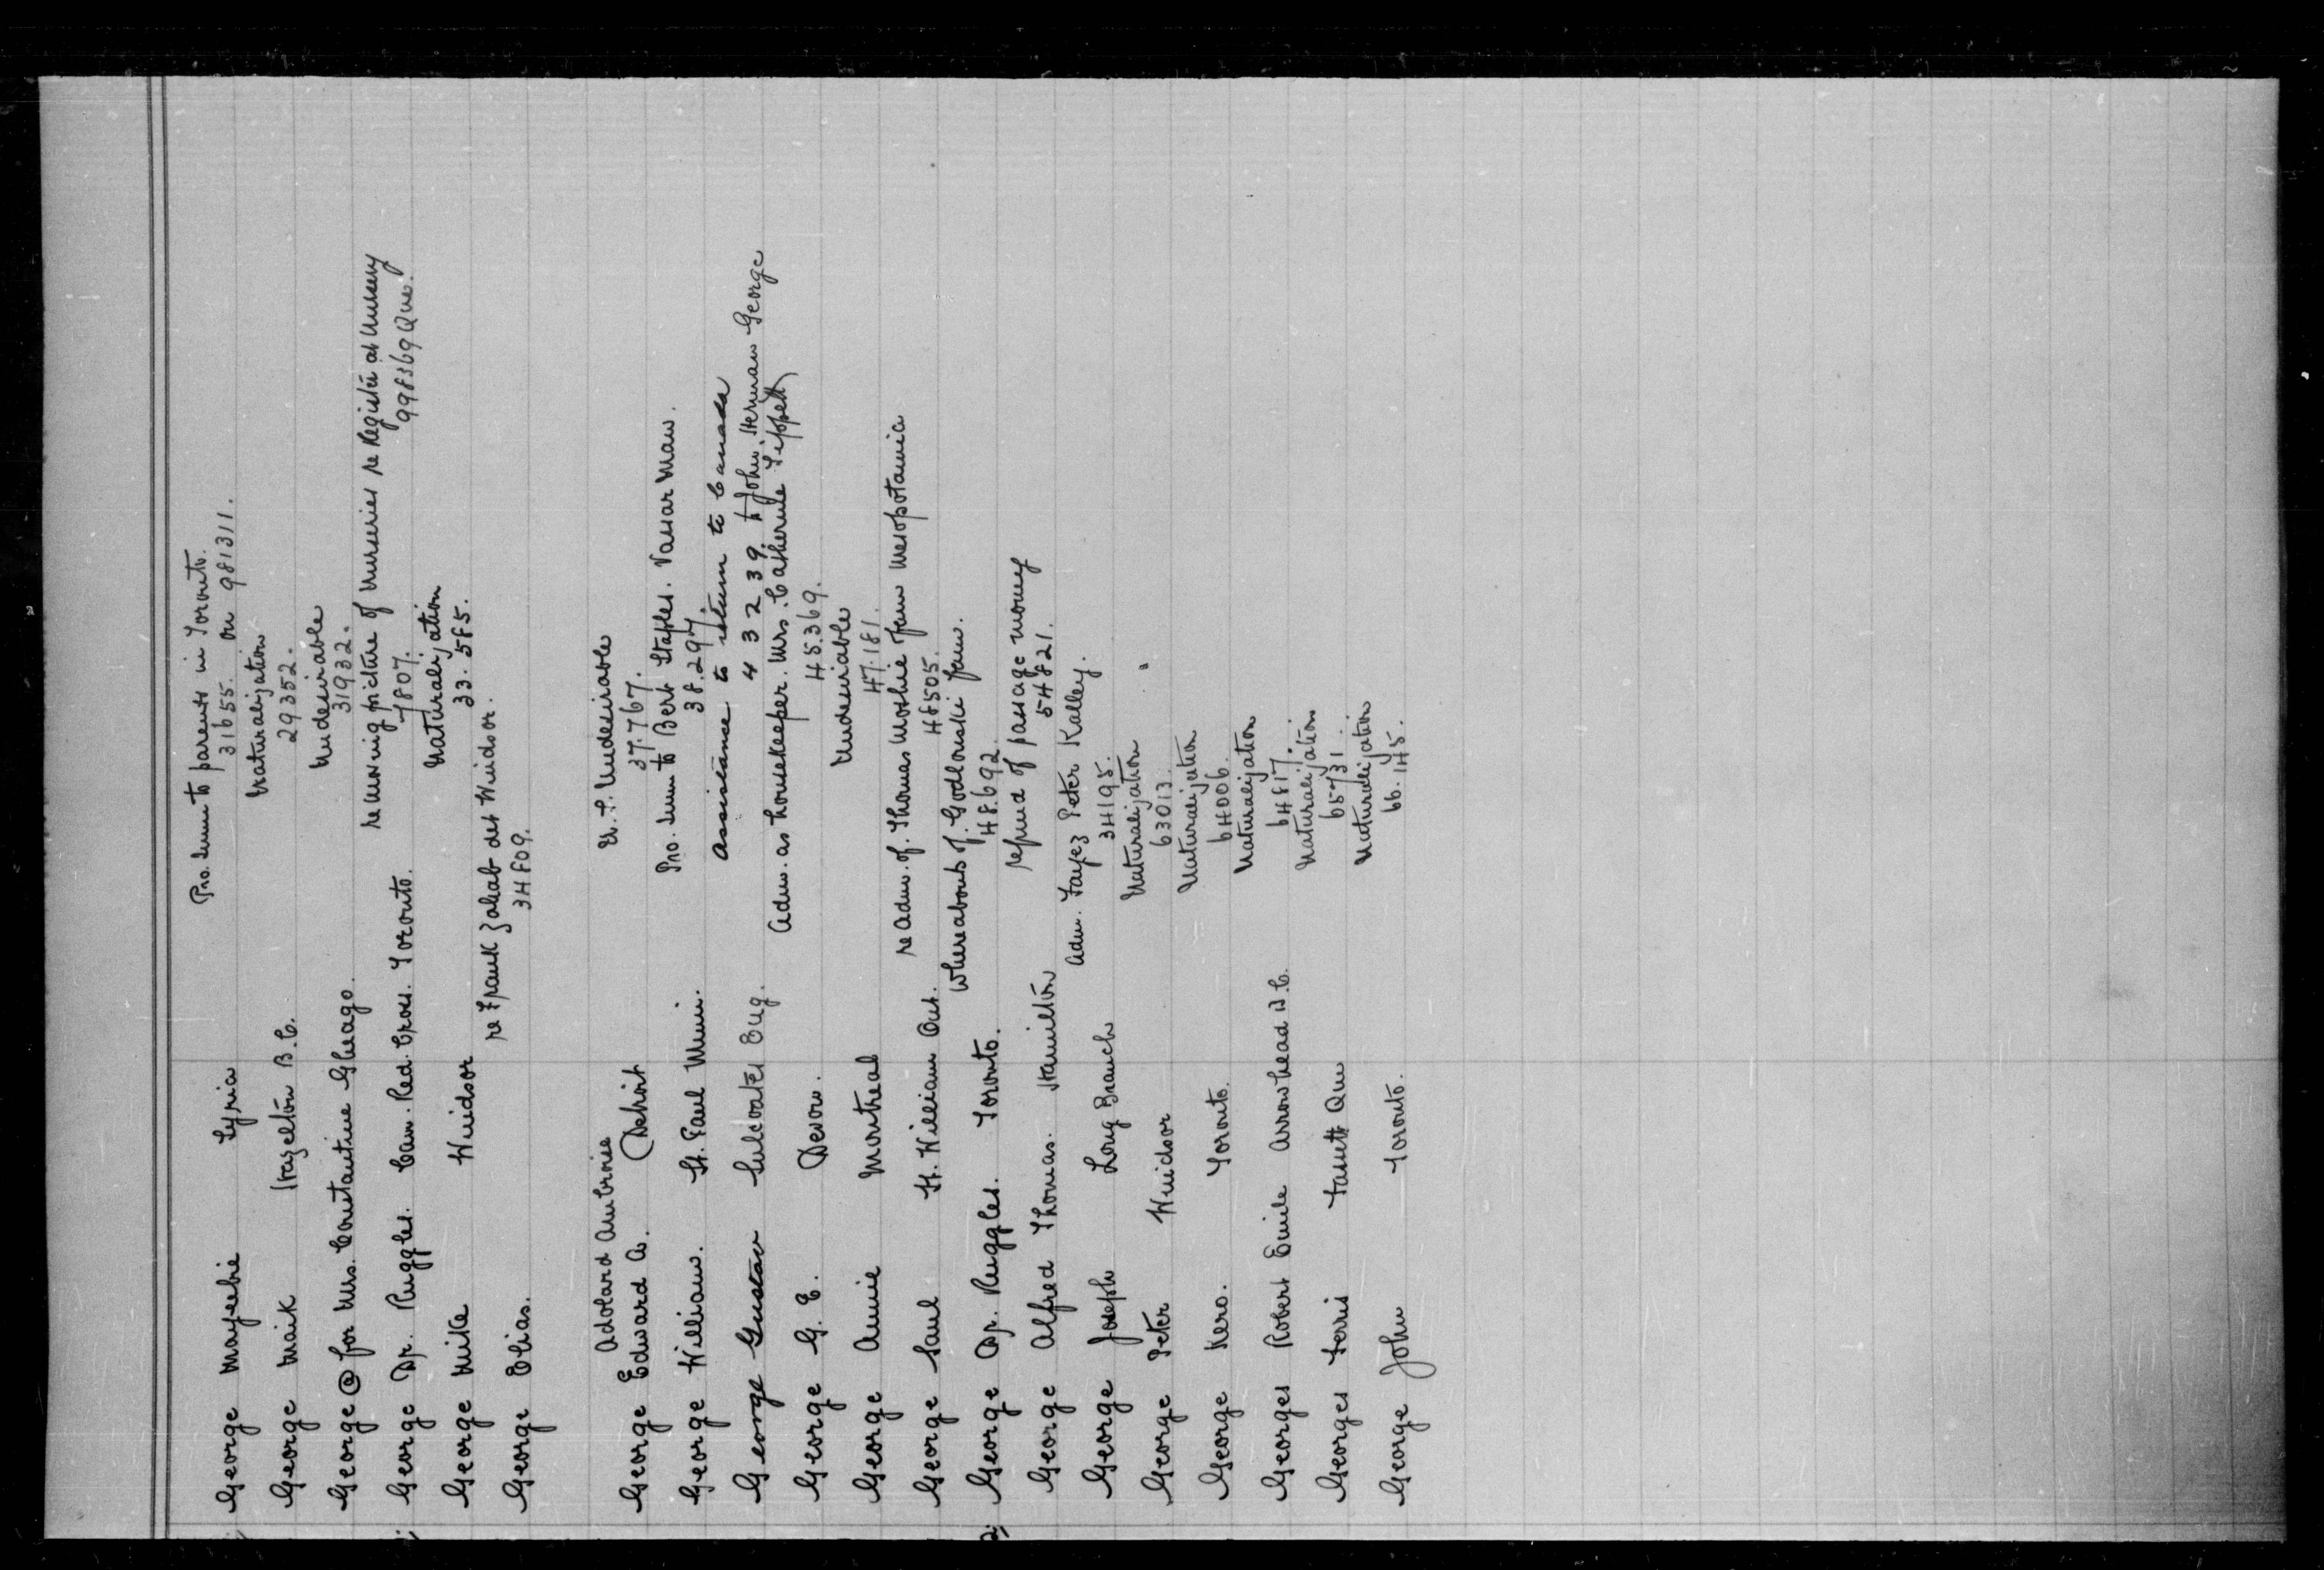 Pro. Imm to parents in Toronto.
George Mayeebie Syria 31655. on 981311.
Naturalization
George Maik Hazelton B.C. 29352.
Undesirable
George @ for Mrs. Constantine Chicago. 31932.
re moving picture of Nurseries re Register at Nursery
George Dr. Ruggles. Can. Red. Cross. Toronto. 7807. 998369 Que.
Naturalization
George Mike Windsor 33.585.
re Frank Zahab det Windsor.
George Elias. 34809.
Adolard Ambroise U.S. Undesirable
George Edward A. Detroit 37.767.
Pro. Imm to Bert Staples. Vassar Man.
George William. St. Paul Minn. 38.297.
Assistance to return to Canada
George Gustav Sulcoates Eng. 43239 John Herman George
Adm. as housekeeper. Mrs. Catherine Tippett
George G. E. Devon. 45.369.
Undesirable
George Annie Montreal 47.181.
re Adm. of. Thomas Moshie from Mesopotamia
George Saul Ft. William Ont. 48505.
Whereabouts of. Godlouski fam.
2; George Dr. Ruggles. Toronto. 48.692.
refund of passage money
George Alfred Thomas. Hamilton 54821.
Adm. Fayez Peter Kalley.
George Joseph Long Branch 34195.
Naturalization
George Peter Windsor 63013.
Naturalization
George Kero. Toronto. 64006.
Naturalization
Georges Robert Emile Arrowhead B.C. 64817.
Naturalization
Georges Ferris Que 65731.
Naturalization
George John Toronto. 66.145.